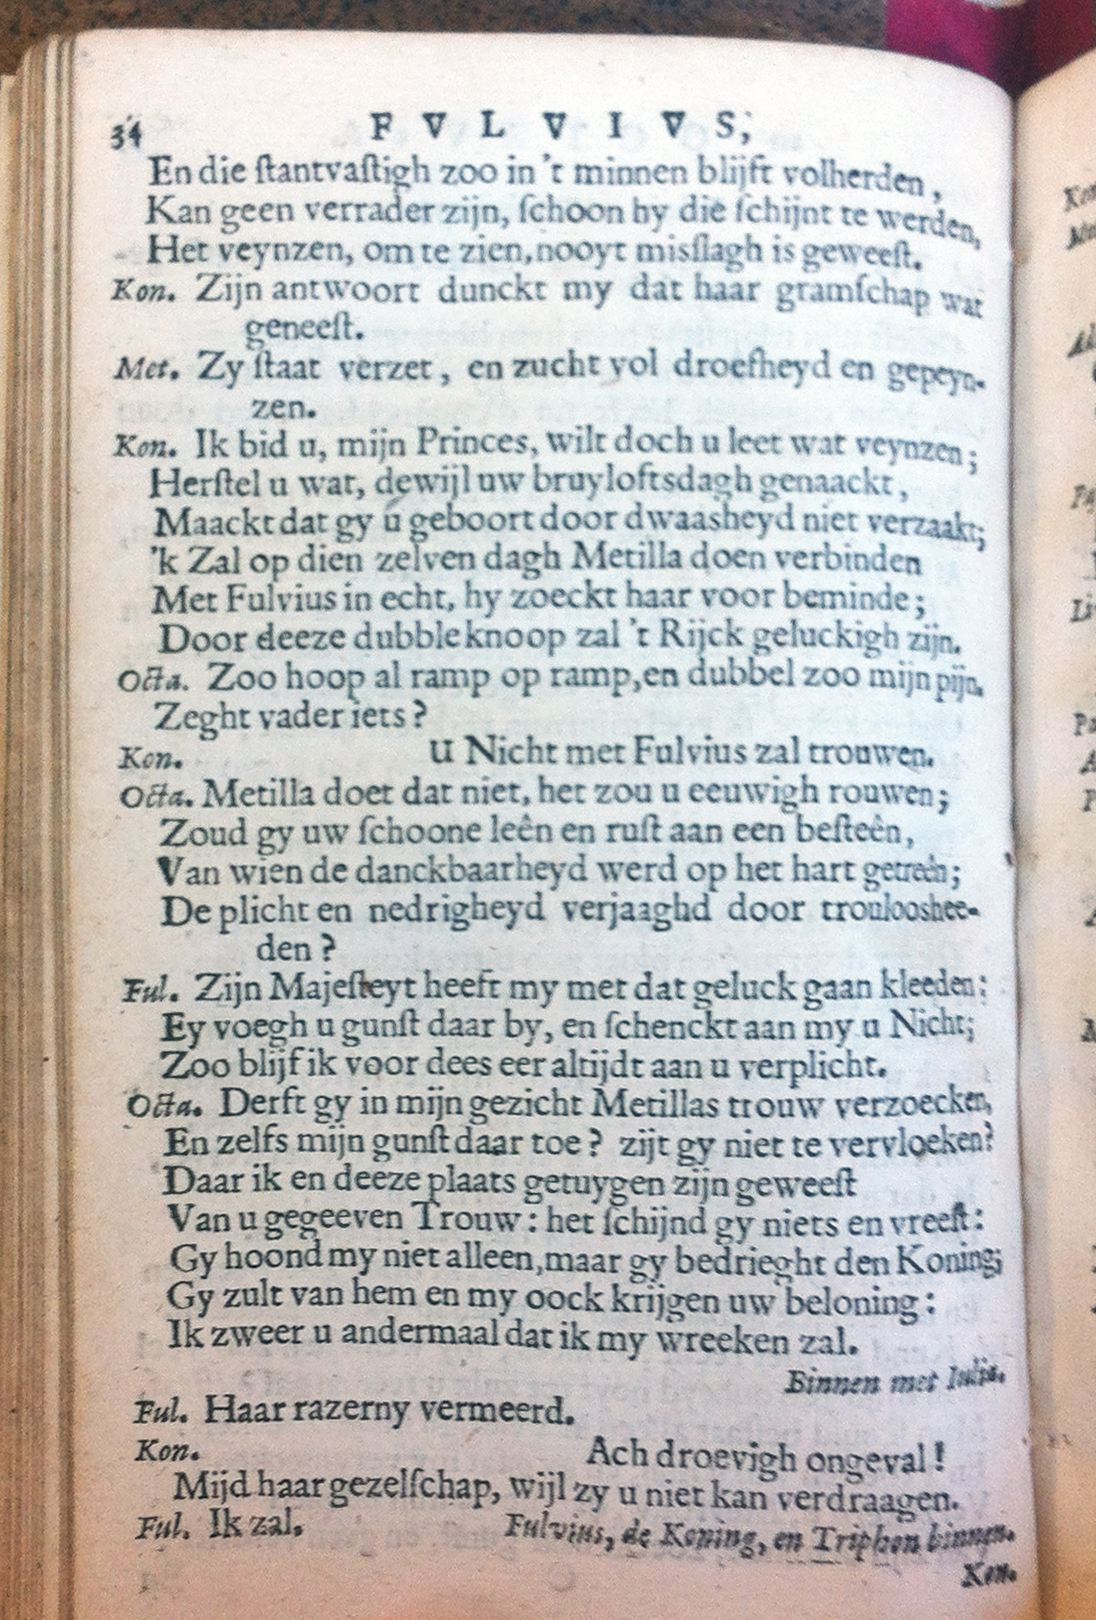 34 FVLVIVS,
En die ſtantvaſtigh zoo in 't minnen blijft volherden,
Kan geen verrader zijn, ſchoon hy die ſchijnt te werden,
Het veynzen, om te zien, nooyt misſlagh is geweeſt.
Kon. Zijn antwoort dunckt my dat haar gramſchap wat
geneeſt.
Met. Zy ſtaat verzet, en zucht vol droefheyd en gepeyn-
zen.
Kon. Ik bid u, mijn Princes, wilt doch u leet wat veynzen;
Herſtel u wat, dewijl uw bruyloftsdagh genaackt,
Maackt dat gy u geboort door dwaasheyd niet verzaakt;
'k Zal op dien zelven dagh Metilla doen verbinden
Met Fulvius in echt, hy zoeckt haar voor beminde;
Door deeze dubble knoop zal 't Rijck geluckigh zijn.
Octa. Zoo hoop al ramp op ramp, en dubbel zoo mijn pijn.
Zeght vader iets?
Kon. U Nicht met Fulvius zal trouwen.
Octa. Metilla doet dat niet, het zou u eeuwigh rouwen;
Zoud gy uw ſchoone leên en ruſt aan een beſteên,
Van wien de danckbaarheyd werd op het hart getreên;
De plicht en nedrigheyd verjaaghd door troulooshee-
den?
Ful. Zijn Majeſteyt heeft my met dat geluck gaan kleeden;
Ey voegh u gunſt daar by, en ſchenckt aan my u Nicht;
Zoo blijf ik voor dees eer altijdt aan u verplicht.
Octa. Derft gy in mijn gezicht Metillas trouw verzoecken,
En zelfs mijn gunſt daar toe? zijt gy niet te vervloeken?
Daar ik en deeze plaats getuygen zijn geweeſt
Van u gegeeven Trouw: het ſchijnd gy niets en vreeſt:
Gy hoond my niet alleen, maar gy bedrieght den Koning;
Gy zult van hem en my oock krijgen uw beloning:
Ik zweer u andermaal dat ik my wreeken zal.
Binnen met Iulia.
Ful. Haar razerny vermeerd.
Kon. Ach droevigh ongeval!
Mijd haar gezelſchap, wijl zy u niet kan verdraagen.
Ful. Ik zal. Fulvius, de Koning, en Triphon binnen.
Kon.